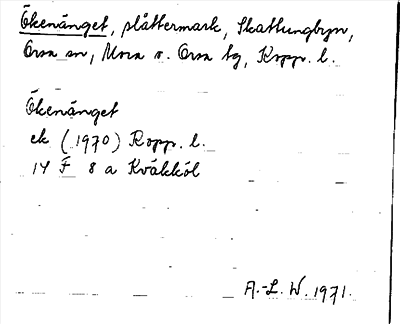 Ökenänget, slåttermark, Skattungbyn,
Orsa sn, Mora o. Orsa tg, Kopp. l.
Ökenänget
ek (1970) Kopp. l.
14 F 8 a Kväkköl
A.-L. W. 1971.